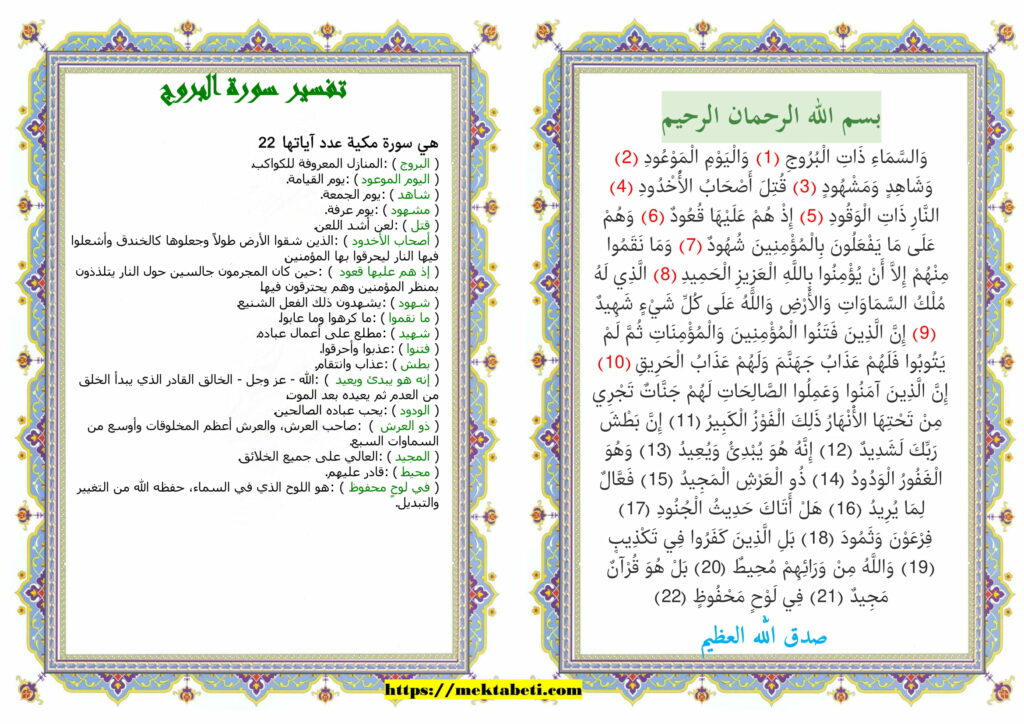 بسم الله الرحمان الرحيم
وَالسَّمَاءِ ذَاتِ الْبُرُوجِ (1) وَالْيَوْمِ الْمَوْعُودِ (2)
وَشَاهِدٍ وَمَشْهُودٍ (3) قُتِلَ أَصْحَابُ الْأُخْدُودِ (4)
النَّارِ ذَاتِ الْوَقُودِ (5) إِذْ هُمْ عَلَيْهَا قُعُودٌ (6) وَهُمْ
عَلَى مَا يَفْعَلُونَ بِالْمُؤْمِنِينَ شُهُودٌ (7) وَمَا نَقَمُوا
مِنْهُمْ إِلاَّ أَنْ يُؤْمِنُوا بِاللَّهِ الْعَزِيزِ الْحَمِيدِ (8) الَّذِي لَهُ
مُلْكُ السَّمَاوَاتِ وَالْأَرْضِ وَاللَّهُ عَلَى كُلِّ شَيْءٍ شَهِيدٌ
(9) إِنَّ الَّذِينَ فَتَنُوا الْمُؤْمِنِينَ وَالْمُؤْمِنَاتِ ثُمَّ لَمْ
يَتُوبُوا فَلَهُمْ عَذَابُ جَهَنَّمَ وَلَهُمْ عَذَابُ الْحَرِيقِ (10)
إِنَّ الَّذِينَ آمَنُوا وَعَمِلُوا الصَّالِحَاتِ لَهُمْ جَنَّاتٌ تَجْرِي
مِنْ تَحْتِهَا الْأَنْهَارُ ذَلِكَ الْفَوْزُ الْكَبِيرُ (11) إِنَّ بَطْشَ
رَبِّكَ لَشَدِيدٌ (12) إِنَّهُ هُوَ يُبْدِئُ وَيُعِيدُ (13) وَهُوَ
الْغَفُورُ الْوَدُودُ (14) ذُو الْعَرْشِ الْمَجِيدُ (15) فَعَّالٌ
لِمَا يُرِيدُ (16) هَلْ أَتَاكَ حَدِيثُ الْجُنُودِ (17)
فِرْعَوْنَ وَثَمُودَ (18) بَلِ الَّذِينَ كَفَرُوا فِي تَكْذِيبٍ
(19) وَاللَّهُ مِنْ وَرَائِهِمْ مُحِيطٌ (20) بَلْ هُوَ قُرْآنٌ
مَجِيدٌ (21) فِي لَوْحٍ مَحْفُوظٍ (22)
صدق الله العظيم
تفسير سورة البروج
هي سورة مكية عدد آياتها 22
( البروج ) :المنازل المعروفة للكواكب.
( اليوم الموعود ) :يوم القيامة.
( شاهد ) :يوم الجمعة.
( مشهود ) :يوم عرفة.
( قتل ) :لعن أشد اللعن.
( أصحاب الأخدود ) :الذين شقوا الأرض طولاً وجعلوها كالخندق وأشعلوا
فيها النار ليحرقوا بها المؤمنين
( إذ هم عليها قعود ) :حين كان المجرمون جالسين حول النار يتلذذون
بمنظر المؤمنين وهم يحترقون فيها.
( شهود ) :يشهدون ذلك الفعل الشنيع.
( ما نقموا ) :ما كرهوا وما عابوا.
( شهيد ) :مطلع على أعمال عباده.
( فتنوا ) :عذبوا وأحرقوا.
( بطش ) :عذاب وانتقام.
( إنه هو يبدئ ويعيد ) :الله - عز وجل - الخالق القادر الذي يبدأ الخلق
من العدم ثم يعيده بعد الموت.
( الودود ) :يحب عباده الصالحين.
( ذو العرش ) :صاحب العرش، والعرش أعظم المخلوقات وأوسع من
السماوات السبع.
( المجيد ) :العالي على جميع الخلائق.
( محيط ) :قادر عليهم.
( في لوح محفوظ ) :هو اللوح الذي في السماء، حفظه الله من التغيير
والتبديل.
https://mektabeti.com